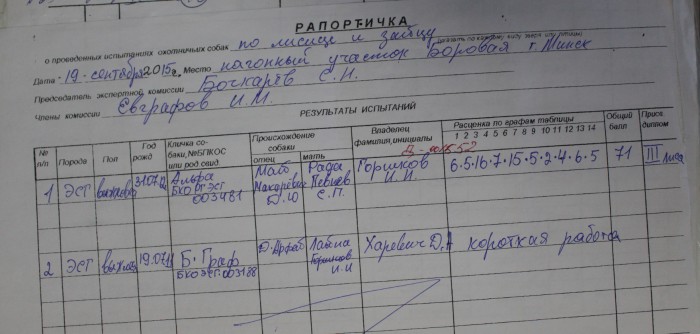 РАПОРТИЧКА
о проведенных испытаниях охотничьих собак по лисице и зайцу
указать по каждому виду зверя или птицы
Дата 19 сентября 2015г. Место нагонный участок Боровая г. Минск
Председатель экспертной комиссии Бочкарёв С.Н.
Члены комиссии Евграфов И.М.
РЕЗУЛЬТАТЫ ИСПЫТАНИЙ
№ п/п Порода Пол Год рожд Кличка собаки, №БПКОС или род свид. Происхождение собаки отец мать Владелец фамилия, инициалы Расценка по графам таблицы 1 2 3 4 5 6 7 8 9 10 11 12 13 14 Общий балл Присв. диплом
1 ЭСГ Альфа БКО РГ ЭСГ 003481 Макаревич Д.Ю Рада Певнев С.П. Горшков И.И. 6·5·16·7·15·5·2·4·6·5 71 III лиса
2 ЭСГ 19.07.11 Б·Граф БКОЭСГ.003188 Горшков И.И Харевич Д.А короткая работа